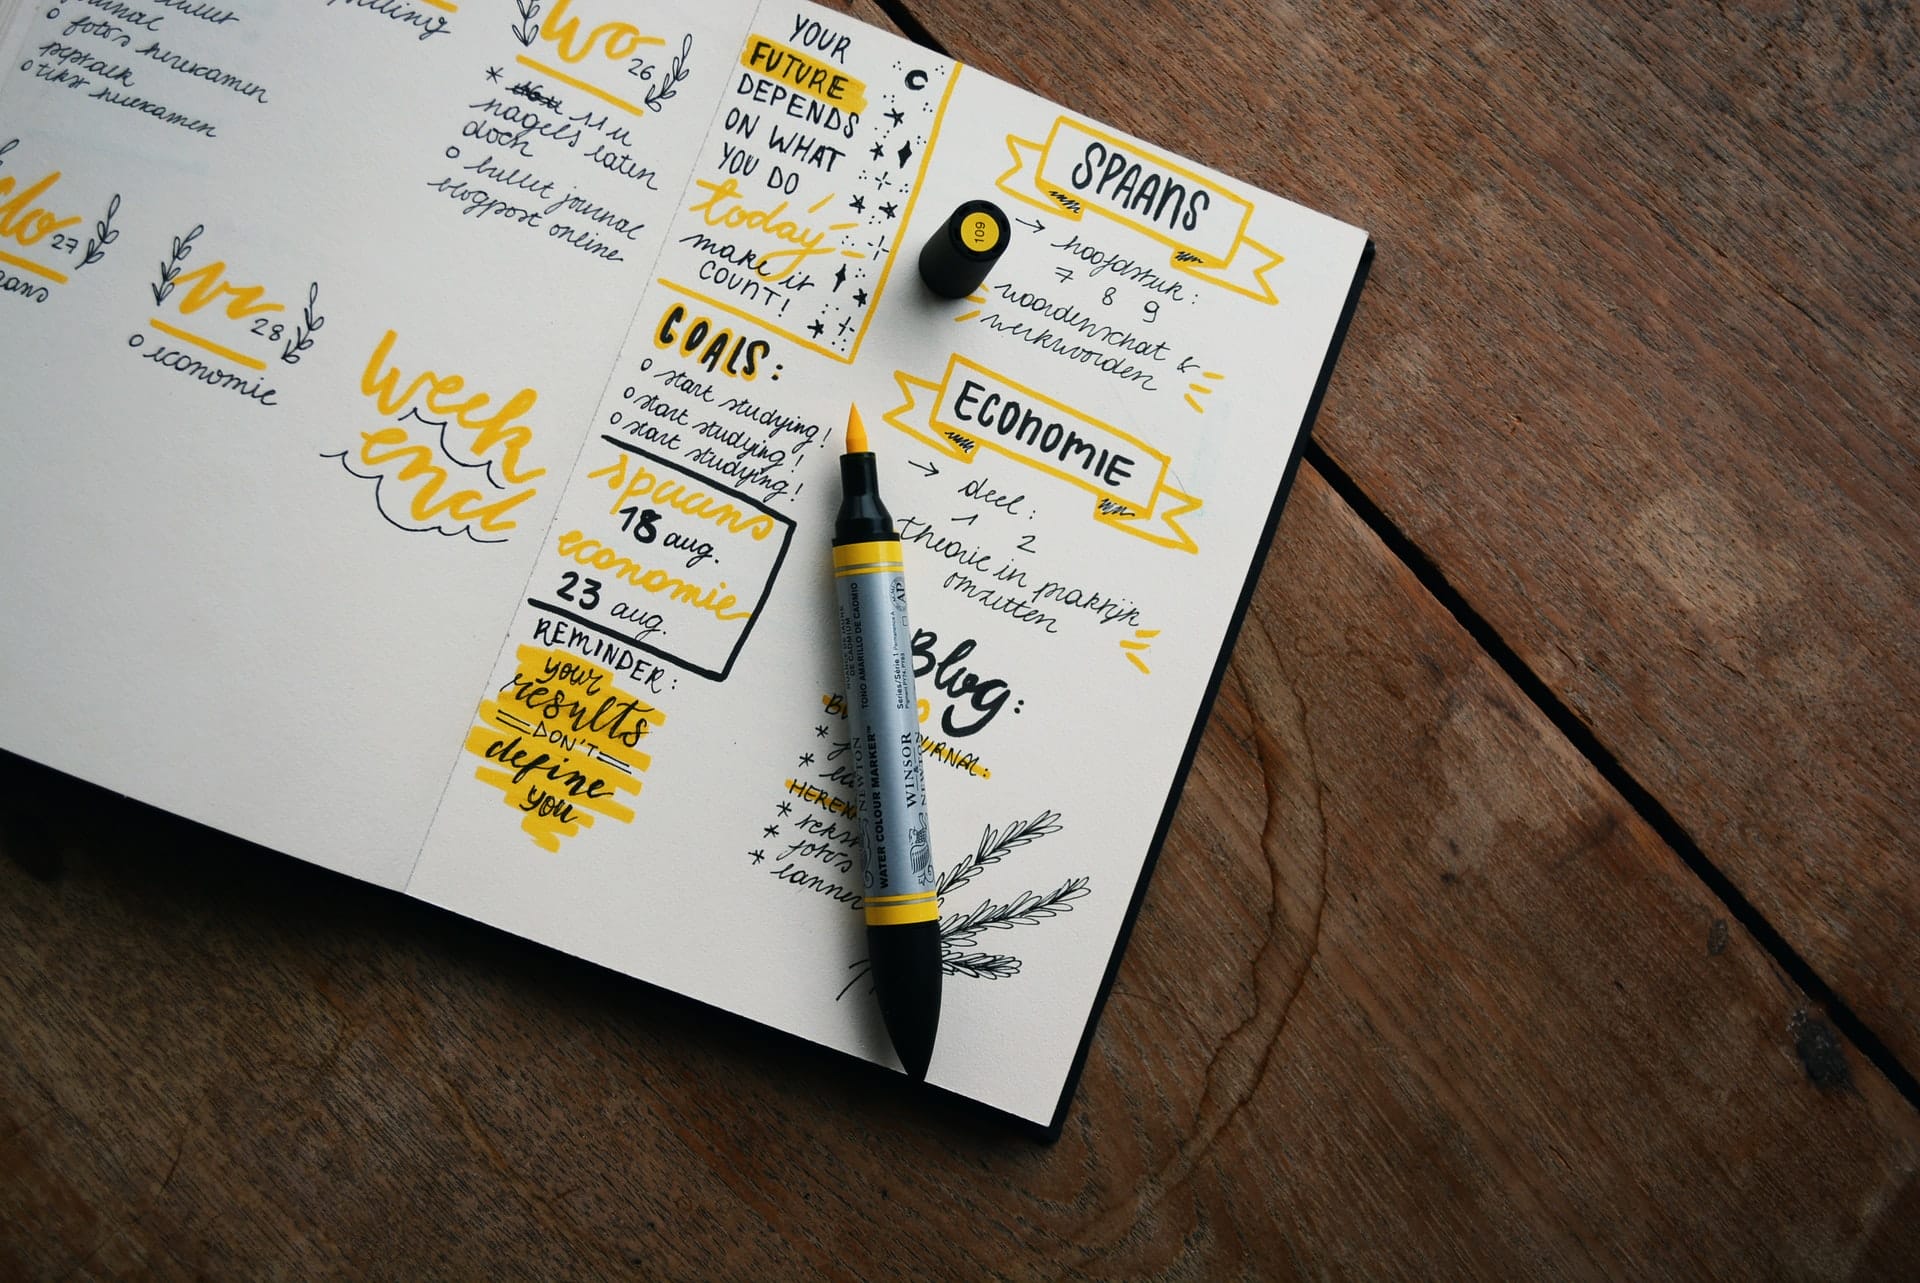 bullet
journal
o foto's herexamen
peptalk
o tekst herexamen
Wo 26
* 11 u
nagels laten
doen
o bullet journal
blogpost online
do 27
vr 28
o economie
week
end
YOUR
FUTURE
DEPENDS
ON WHAT
YOU DO
today
make it
COUNT!
GOALS:
o start studying!
o start studying!
o start studying!
spaans
18 aug.
economie
23 aug.
REMINDER:
your
results
DON'T
define
you
SPAANS
→ hoofdstuk:
7 8 9
woordenschat &
werkwoorden
ECONOMIE
→ deel:
1 2
theorie in praktijk
omzetten
Blog:
URNAL:
HEREX
* foto's
109
WATER COLOUR MARKER™
WINSOR
& NEWTON
Series/Série 1
TONO AMARILLO DE CADMIO
AP